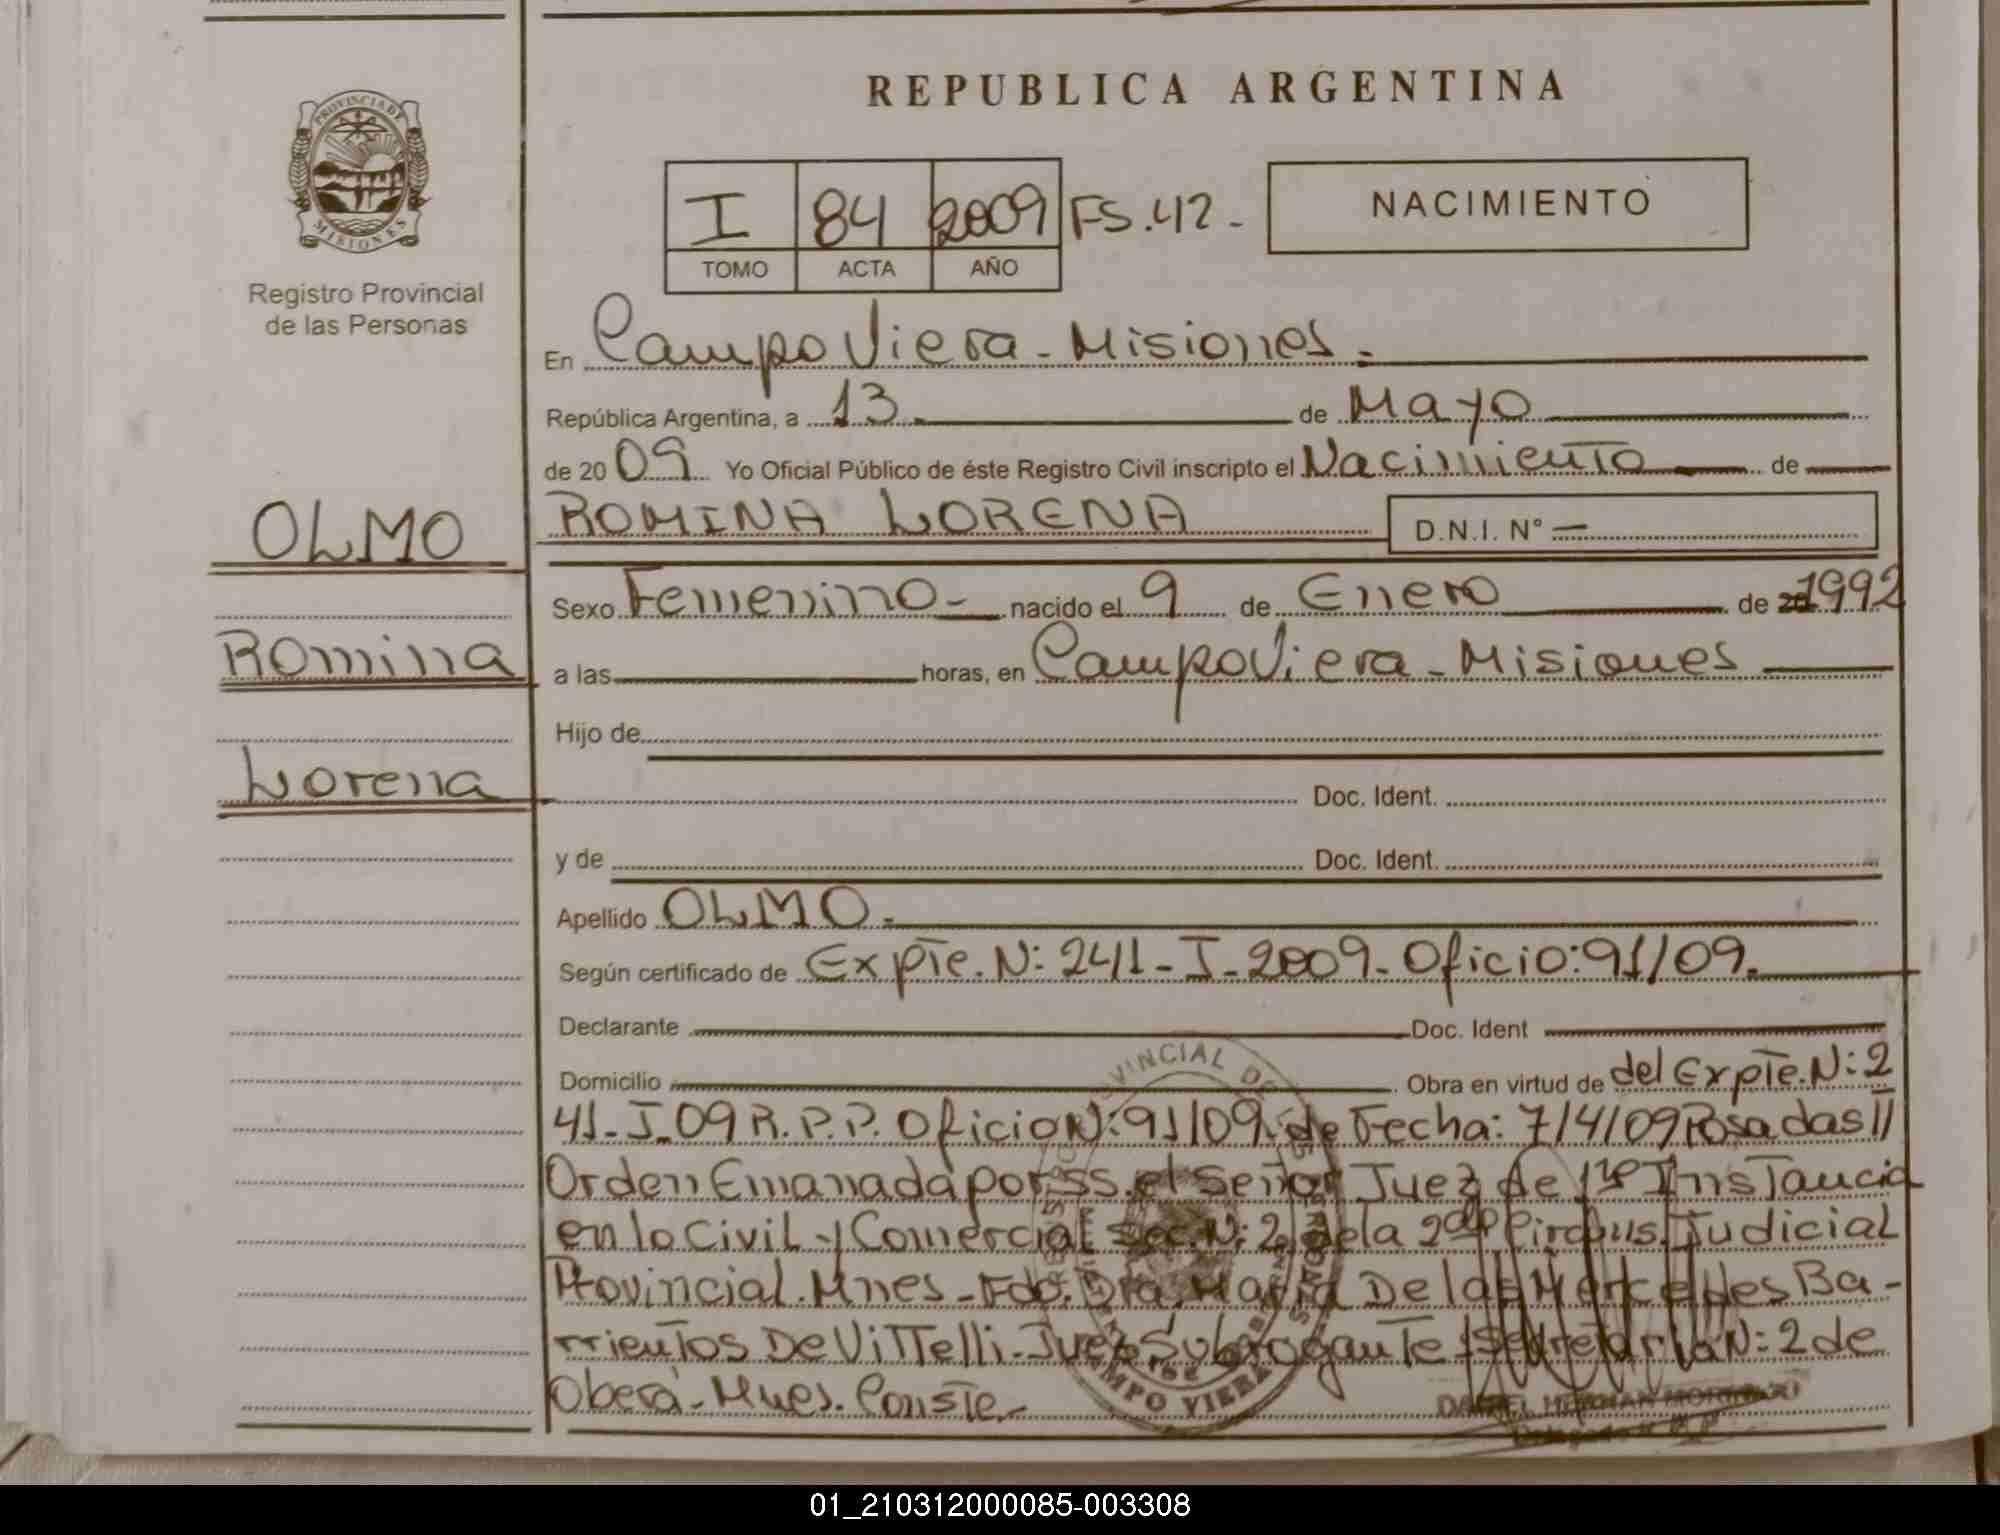 REPUBLICA ARGENTINA
PROVINCIA DE
MISIONES
Registro Provincial
de las Personas
I 84 2009 FS.42-
TOMO ACTA AÑO
NACIMIENTO
En Campo Viera - Misiones.
República Argentina, a 13. de Mayo
de 20 09 Yo Oficial Público de éste Registro Civil inscripto el Nacimiento de
OLMO
ROMINA LORENA D.N.I. Nº —
Sexo Femenino - nacido el 9 de Enero de 20 1992
Romina
a las horas, en Campo Viera - Misiones
Hijo de
Lorena
Doc. Ident.
y de Doc. Ident.
Apellido OLMO.
Según certificado de Expte. N: 241 - I - 2009 - Oficio: 91/09.
Declarante Doc. Ident
Domicilio Obra en virtud de del Expte. N: 2
41 - I - 09 R.P.P. Oficio N: 91/09. de Fecha: 7/4/09 Posadas //
Orden Emanada por SS. el Señor Juez de 1re Instancia
en lo Civil y Comercial Sec. N: 2 de la 2da Circuns. Judicial
Provincial. Mnes - Fdo. Dra. María De las Mercedes Ba-
rrientos De Vittelli - Juez Subrogante Secretaría N: 2 de
Oberá - Mnes. Conste -
CAMPO VIERA
01_210312000085-003308